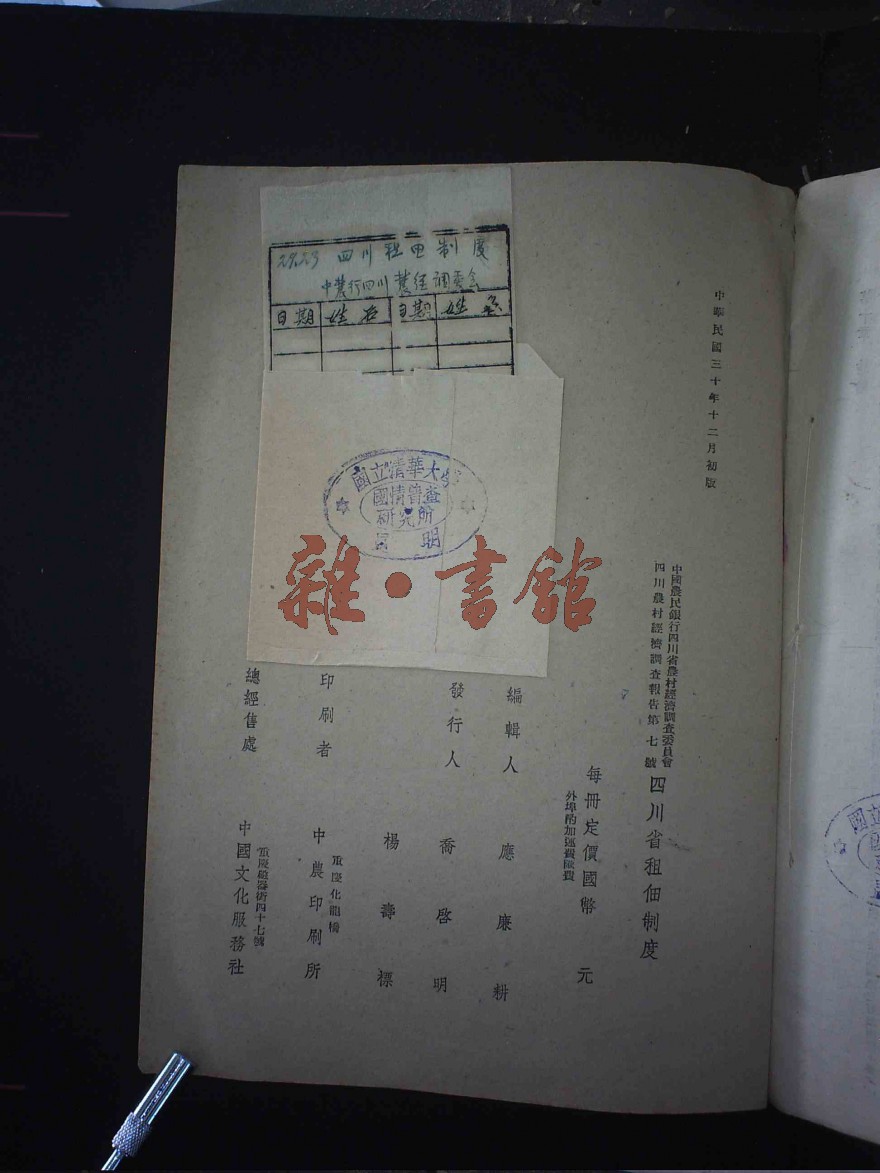 中華民國三十年十二月初版
中國農民銀行四川省農村經濟調查委員會
四川農村經濟調查報告第七號
四川省租佃制度
每冊定價國幣 元
外埠酌加運費匯費
編輯人 應廉耕
發行人 喬啓明
楊壽標
印刷者 中農印刷所
重慶化龍橋
總經售處 中國文化服務社
重慶磁器街四十七號
四川租佃制度
中農行四川農經調委會
日期 姓名 日期 姓名
國立清華大學
國情普查
研究所
昆明
雜·書館